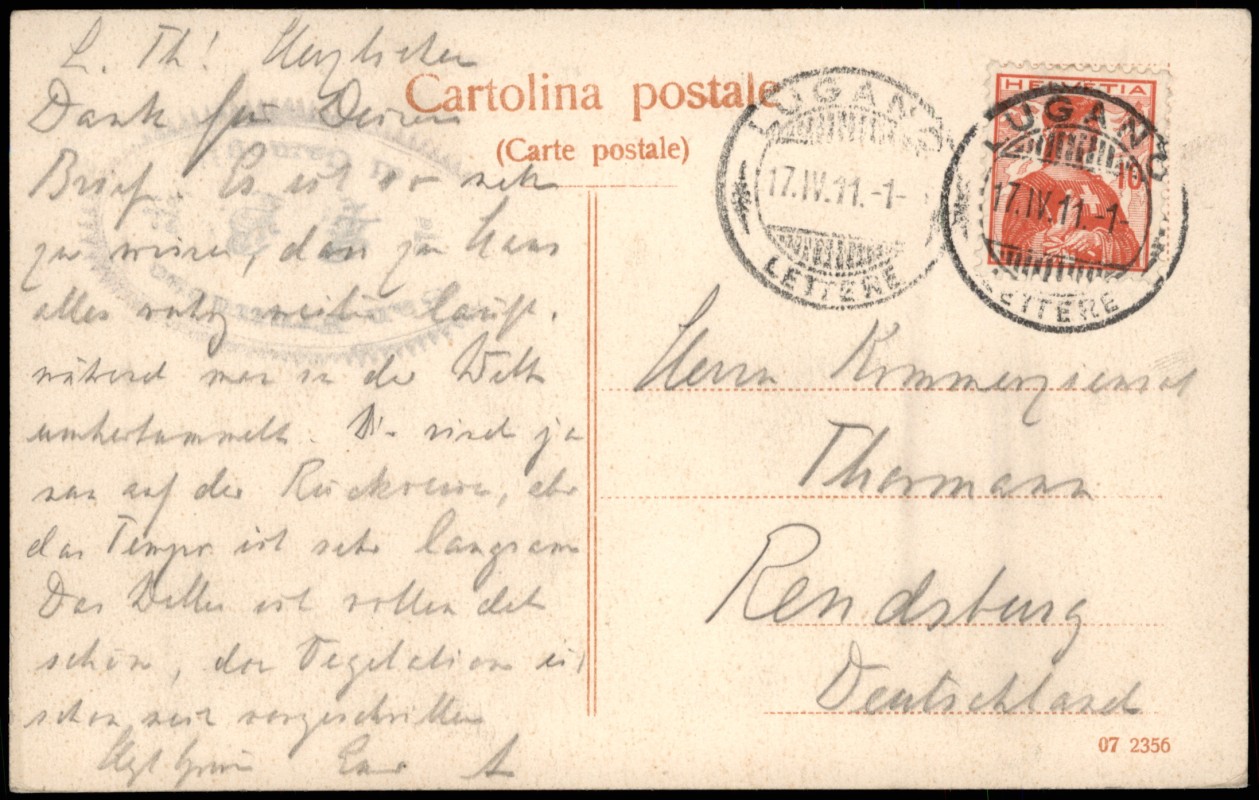 L. Th! Herzlichen
Dank für Deinen
Brief. Es ist so nett
zu wissen, dass zu Haus
alles ruhig weiter läuft,
während man in der Welt
umherbummelt. Wir sind ja
nun auf der Rückreise, aber
das Tempo ist sehr langsam
Das Wetter ist vollendet
schön, die Vegetation ist
schon weit vorgeschritten
Hzl Gruss Euer A
Cartolina postale
(Carte postale)
LUGANO
17.IV.11.-1-
LETTERE
HELVETIA
10
LUGANO
17.IV.11.-1-
LETTERE
Herrn Kommerzienrat
Thormann
Rendsburg
Deutschland
07 2356